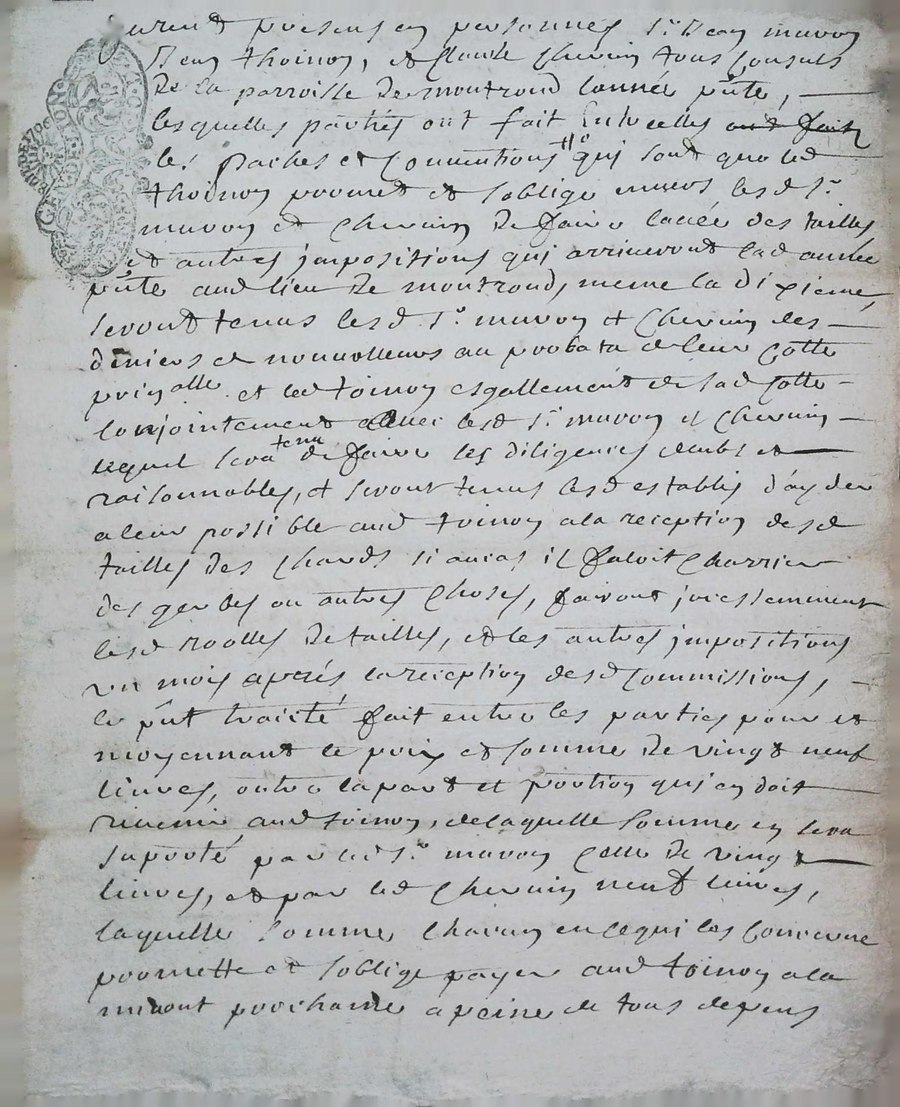 furent presens en personnes Sr. Jean mavon
Jean thoinon, et Claude Chevrin tous Consuls
De la parroisse De montrond lannée pnte,
lesquelles parties ont fait Entrecelles ont fait
les paches et Conventions qui sont que led
thoinon promet et soblige envers lesd Sr.
mavon et Chevrin De faire la des tailles
et autres jmpositions qui arriveront lad année
pnte aud lieu De montrond, meme la dixieme
seront tenus lesd Sr. mavon et Chevrin des
deniers et au prorata de leur Cotte
et led toinon esgallement de sad Cotte
Conjointement avec lesd Sr. mavon et Chevrin
lequel sera tenu de faire les diligences et
raisonnables, et seront tenus lesd establis d'ayder
a leur possible aud toinon a la reception desd
tailles des si au cas il faloit Charrier
des gerbes ou autres Choses, fairont
lesd roolles De tailles, et les autres jmpositions
un mois aprés la reception desd Commissions,
le pnt traicté fait entre les parties pour et
moyennant le prix et somme De vingt neuf
livres, outre la part et portion qui en doit
revenir aud toinon, de laquelle somme en sera
suporté par led Sr. mavon Celle De vingt
livres, et par led Chevrin neuf livres,
laquelle somme Chacun en ce qui les Concerne
promette et soblige payer aud toinon a la
prochaine a peine de tous depens